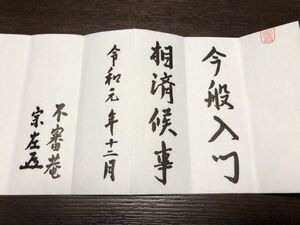 今般入門
相済候事
令和元年十二月
不審菴
宗左